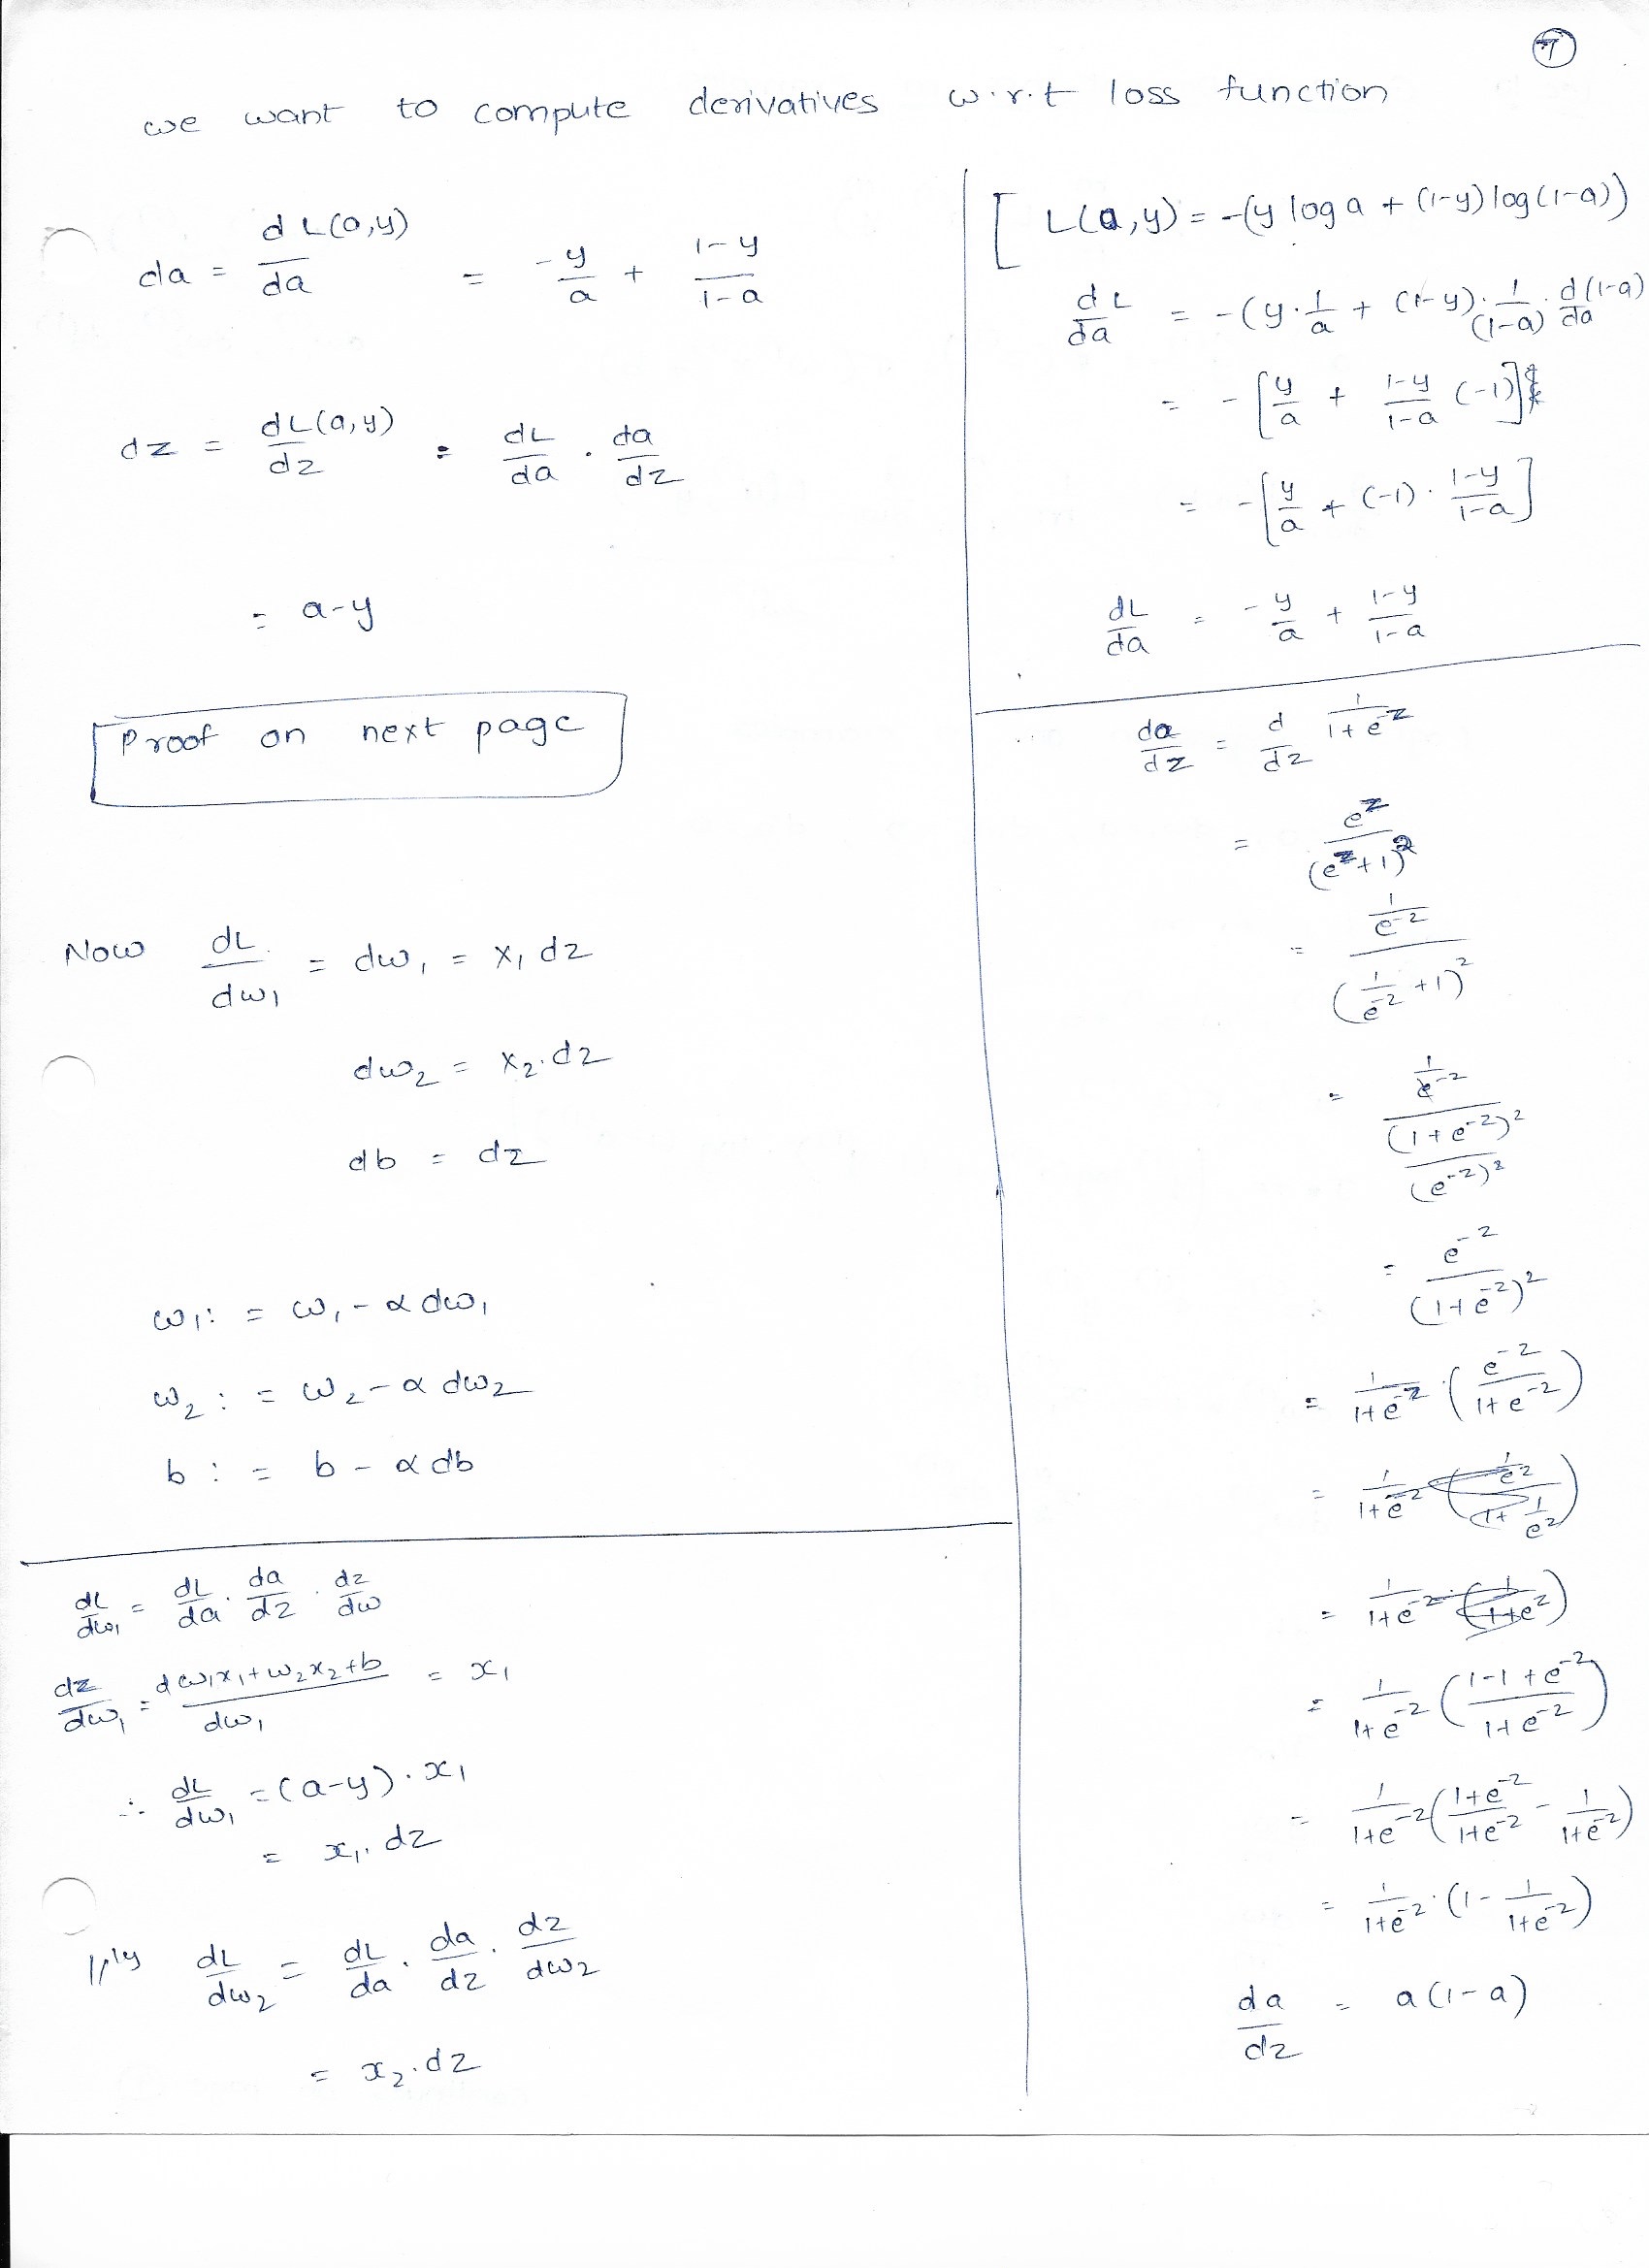 7
we want to compute derivatives w.r.t loss function
da = dL(a,y)/da = -y/a + (1-y)/(1-a)
dz = dL(a,y)/dz = dL/da . da/dz
= a-y
Proof on next page
Now dL/dw₁ = dw₁ = x₁ dz
dw₂ = x₂.dz
db = dz
w₁: = w₁ - α dw₁
w₂ : = w₂ - α dw₂
b : = b - α db
dL/dw₁ = dL/da . da/dz . dz/dw
dz/dw₁ = d w₁x₁+w₂x₂+b/dw₁ = x₁
∴ dL/dw₁ = (a-y).x₁
= x₁. dz
||ly dL/dw₂ = dL/da . da/dz . dz/dw₂
= x₂.dz
[ L(a,y) = -(y log a + (1-y) log(1-a))
dL/da = -(y.1/a + (1-y).1/(1-a) . d(1-a)/da
= -[y/a + (1-y)/(1-a) (-1)]
= -[y/a + (-1) . (1-y)/(1-a)]
dL/da = -y/a + (1-y)/(1-a)
da/dz = d/dz 1/(1+e^-z)
= e^z/(e^z+1)²
= (1/e^-z)/(1/e^-z +1)²
= (1/e^-z)/((1+e^-z)²/(e^-z)²)
= e^-z/(1+e^-z)²
= 1/(1+e^-z) . (e^-z/(1+e^-z))
= 1/(1+e^-z)
= 1/(1+e^-z)
= 1/(1+e^-z) ((1-1+e^-z)/(1+e^-z))
= 1/(1+e^-z) ((1+e^-z)/(1+e^-z) - 1/(1+e^-z))
= 1/(1+e^-z) . (1 - 1/(1+e^-z))
da/dz = a(1-a)